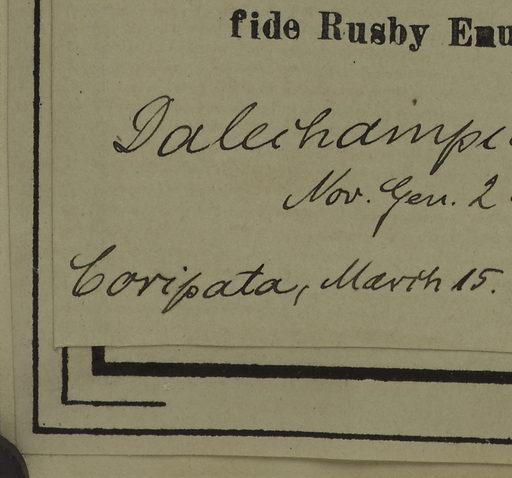 fide Rusby Enu
Dalechampi
Nov. Gen. 2
Coripata, March 15.